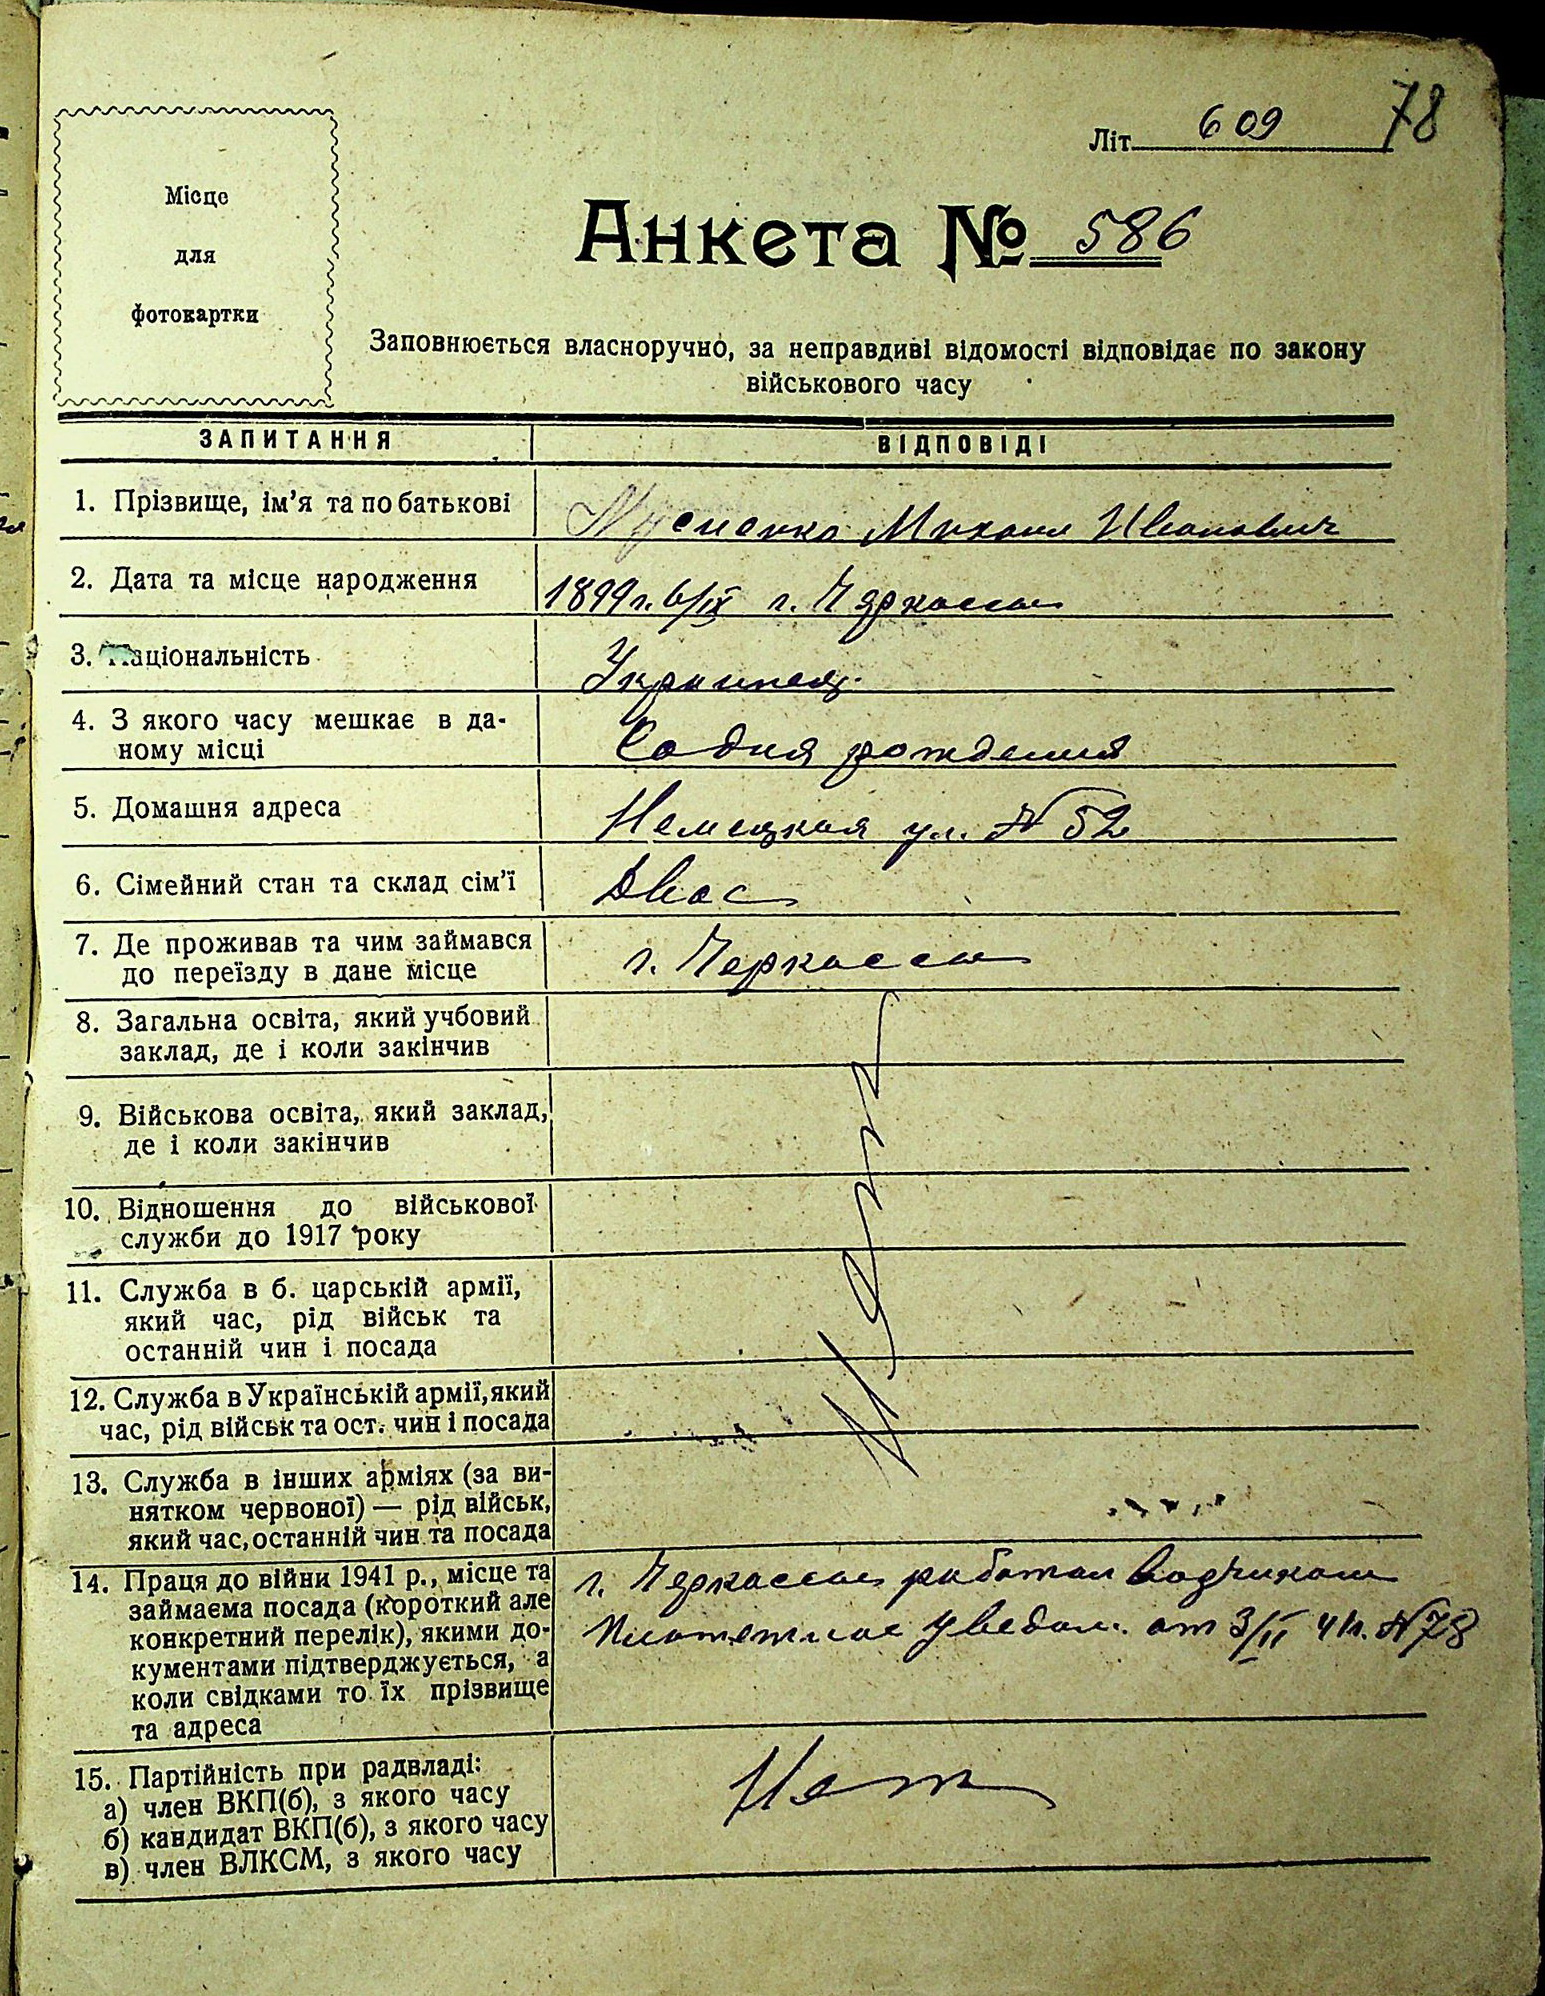 78
Літ 609
Місце
для
фотокартки
Анкета № 586
Заповнюється власноручно, за неправдиві відомості відповідає по закону
військового часу
ЗАПИТАННЯ
ВІДПОВІДІ
1. Прізвище, ім'я та по батькові
Михаил Иванович
2. Дата та місце народження
1899 г. 6/IX г. Черкассы
3. Національність
Украинец.
4. З якого часу мешкає в да-
ному місці
Со дня рождения
5. Домашня адреса
Немецкая ул. N 52
6. Сімейний стан та склад сім'ї
Двое
7. Де проживав та чим займався
до переїзду в дане місце
г. Черкассы
8. Загальна освіта, який учбовий
заклад, де і коли закінчив
9. Військова освіта, який заклад,
де і коли закінчив
10. Відношення до військової
служби до 1917 року
11. Служба в б. царській армії,
який час, рід військ та
останній чин і посада
12. Служба в Українській армії, який
час, рід військ та ост. чин і посада
13. Служба в інших арміях (за ви-
нятком червоної) — рід військ,
який час, останній чин та посада
Нет
14. Праця до війни 1941 р., місце та
займаєма посада (короткий але
конкретний перелік), якими до-
кументами підтверджується, а
коли свідками то їх прізвище
та адреса
г. Черкассы работал
уведом. от 3/II 41г. N 78
15. Партійність при радвладі:
а) член ВКП(б), з якого часу
б) кандидат ВКП(б), з якого часу
в) член ВЛКСМ, з якого часу
Нет